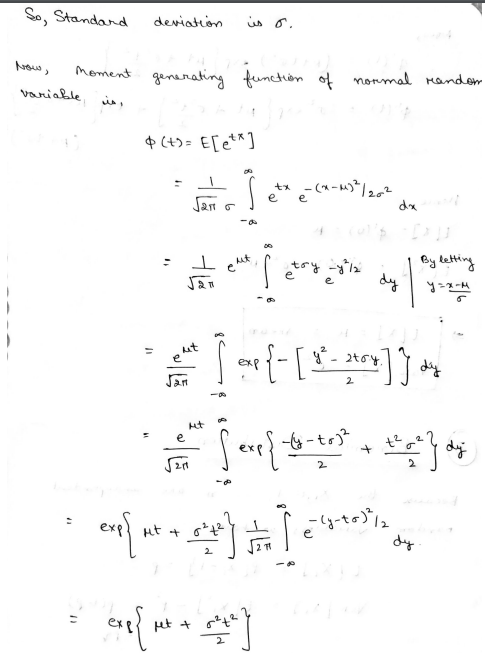 So, Standard deviation is σ.
Now, Moment generating function of normal random
variable is,
ϕ(t) = E[e^{tx}]
= \frac{1}{\sqrt{2π} σ} \int_{-∞}^{∞} e^{tx} e^{-(x-μ)^2/2σ^2} dx
= \frac{1}{\sqrt{2π}} e^{μt} \int_{-∞}^{∞} e^{tσy} e^{-y^2/2} dy | By letting y = \frac{x-μ}{σ}
= \frac{e^{μt}}{\sqrt{2π}} \int_{-∞}^{∞} exp{ -[ \frac{y^2 - 2tσy}{2} ] } dy
= \frac{e^{μt}}{\sqrt{2π}} \int_{-∞}^{∞} exp{ \frac{-(y-tσ)^2}{2} + \frac{t^2σ^2}{2} } dy
= exp{ μt + \frac{σ^2t^2}{2} } \frac{1}{\sqrt{2π}} \int_{-∞}^{∞} e^{-(y-tσ)^2/2} dy.
= exp{ μt + \frac{σ^2t^2}{2} }